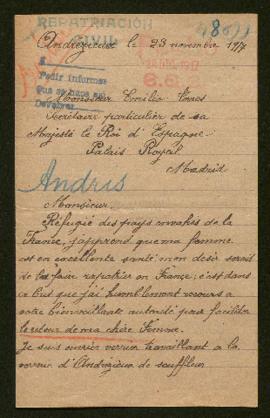 REPATRIACION
CIVIL
Andrezieux le 23 novembre 1917
Pedir informes
que se hace en
Monsieur Emilio Torres
Secrétaire particulière de sa
Majesté le Roi d'Espagne
Palais Royal
Madrid
Andris
Monsieur
Réfugié des pays envahis de la
France, j'apprends que ma femme
est en excellente santé mon désir serait
de la faire rapatrier en France; c'est dans
ce but que j'ai humblement recours à
votre bienveillante autorité pour faciliter
le retour de ma chère Femme.
Je suis ouvrier verrier travaillant à la
verrerie d'Andrézieux de souffleur